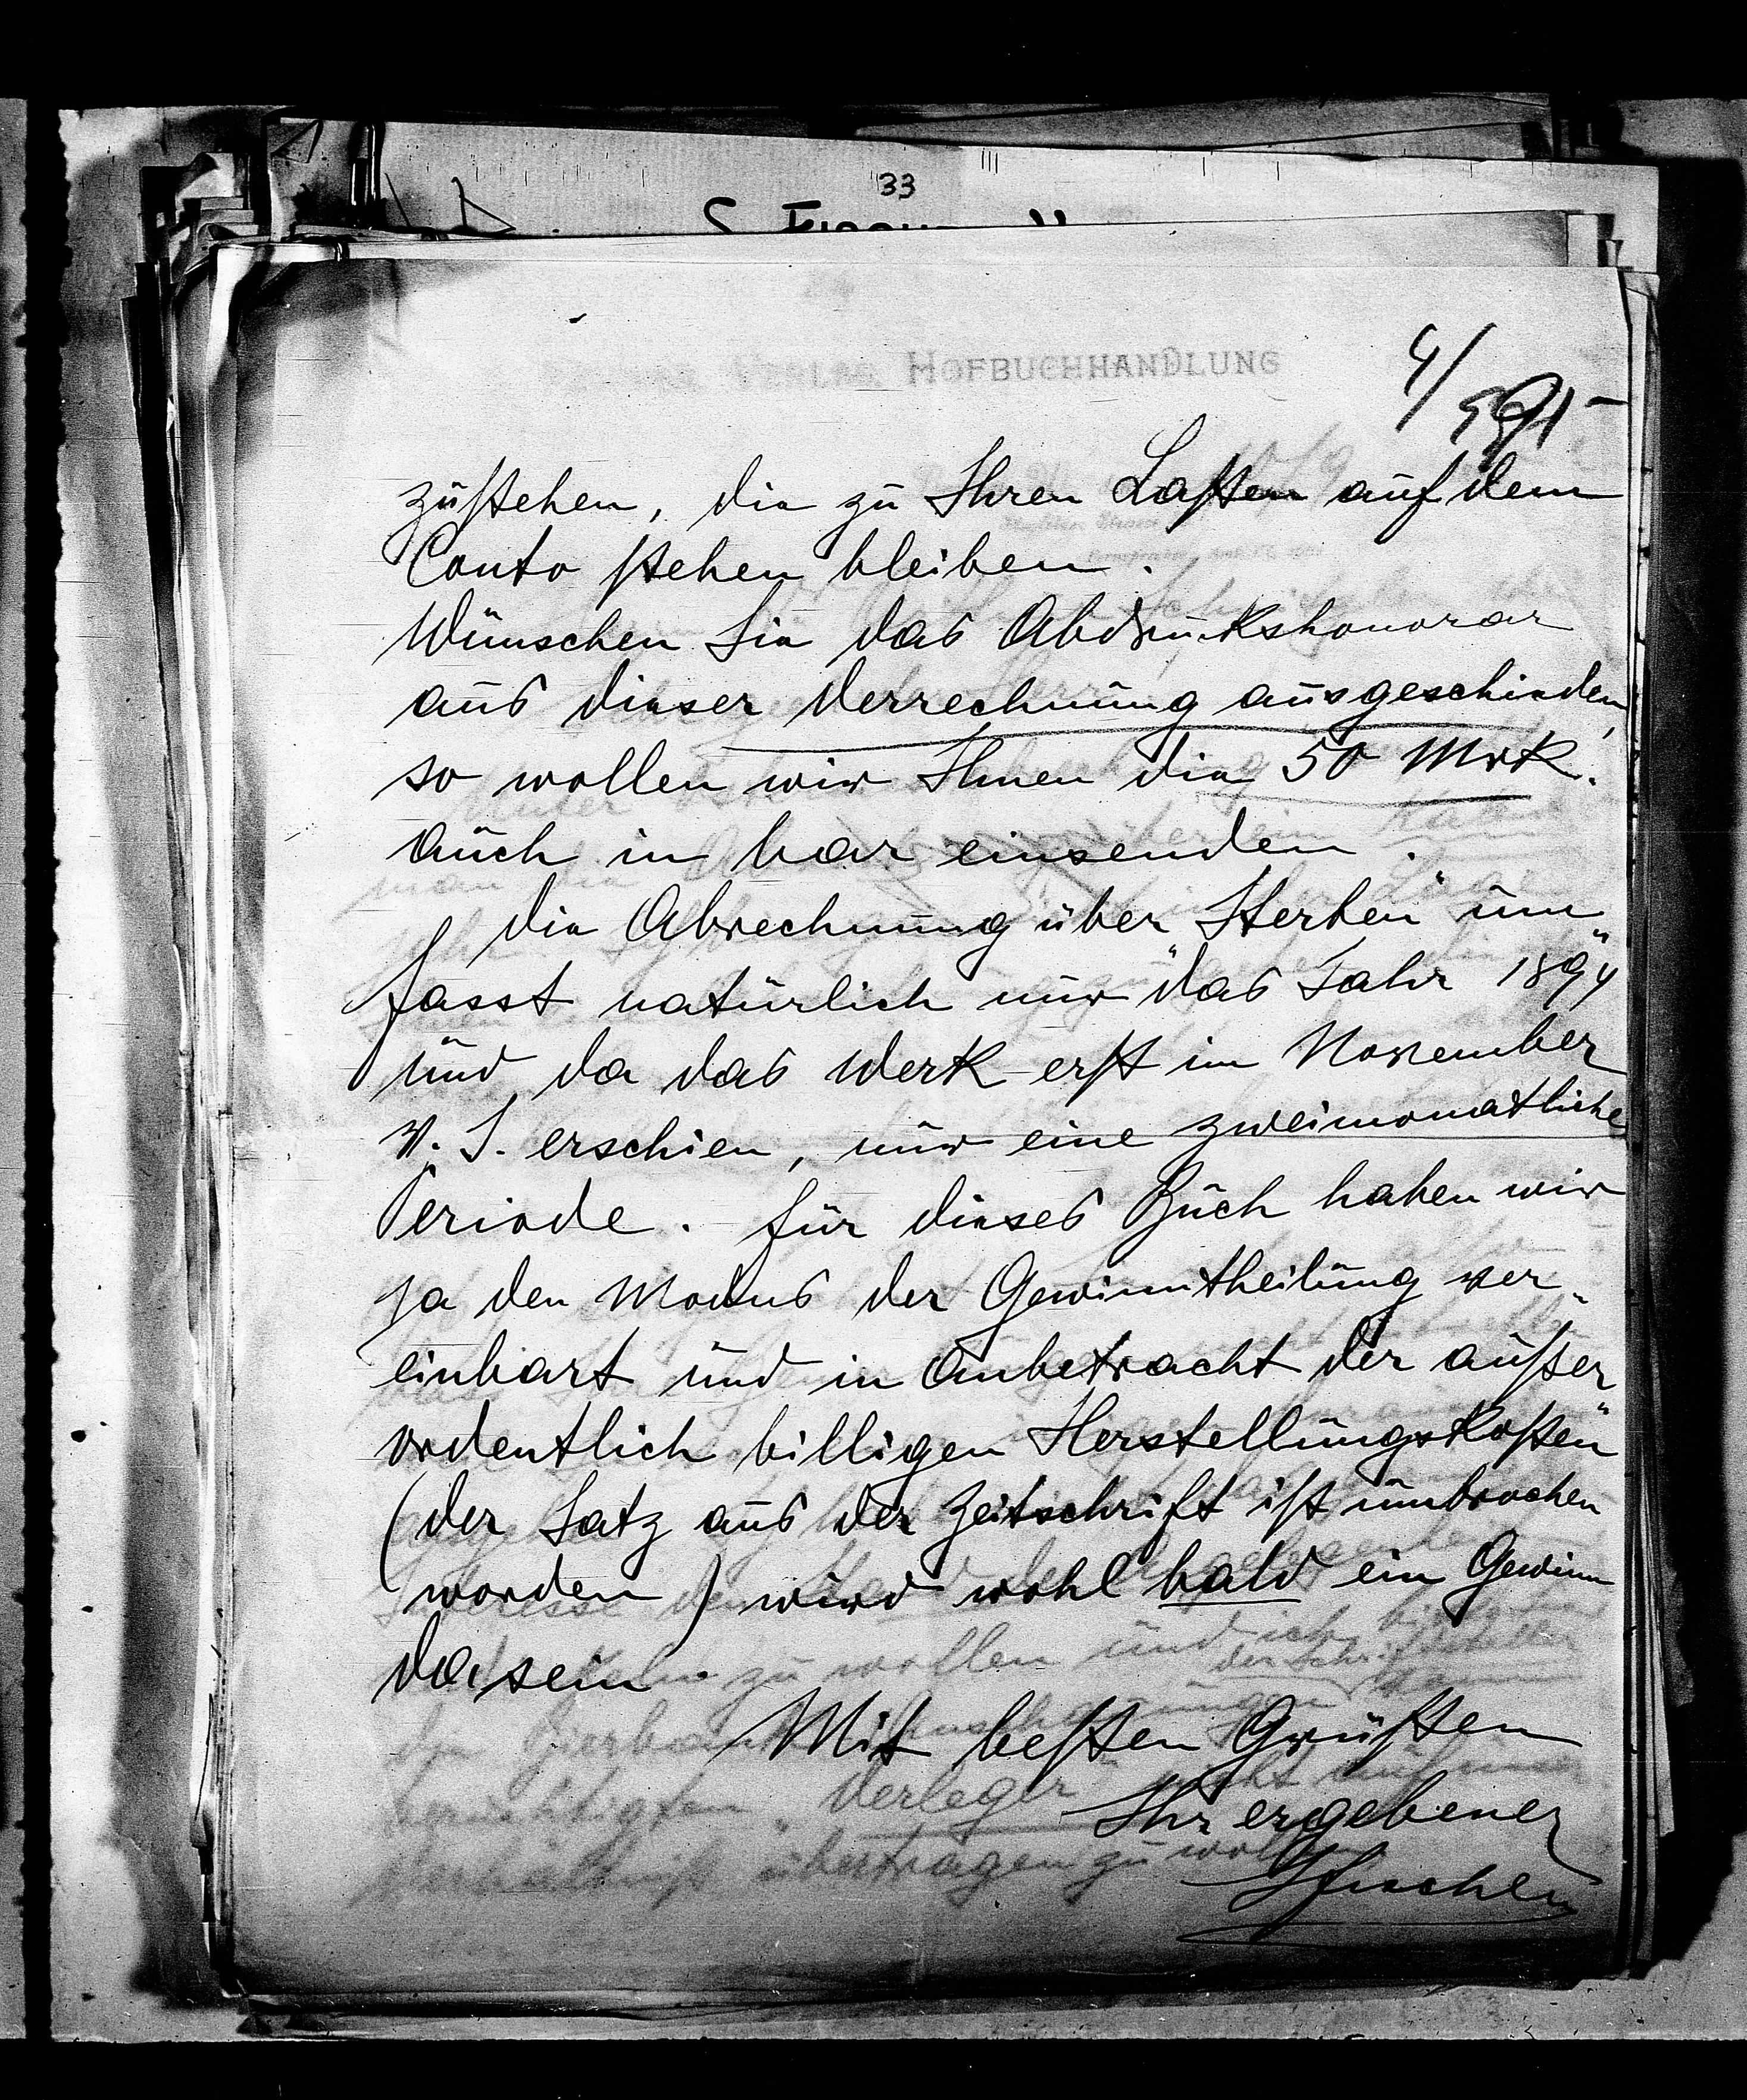 33
VERLAG HOFBUCHHANDLUNG
4/
zustehen, die zu Ihren Lasten auf dem
Conto stehen bleiben.
Wünschen Sie das Abdruckshonorar
aus dieser Verrechnung ausgeschieden,
so wollen wir Ihnen die 50 Mrk.
auch in bar einsenden.
Die Abrechnung über "Sterben" um"
fasst natürlich nur das Jahr 1894
und da das Werk erst im November
v. J. erschien, nur eine zweimonatliche
Periode. Für dieses Buch haben wir
ja den Modus der Gewinntheilung ver"
einbart und in Anbetracht der außer"
ordentlich billigen Herstellungskosten
(der Satz aus der Zeitschrift ist umbrochen
worden) wird wohl bald ein Gewinn
da sein.
Mit besten Grüßen
Ihr ergebener
SFischer